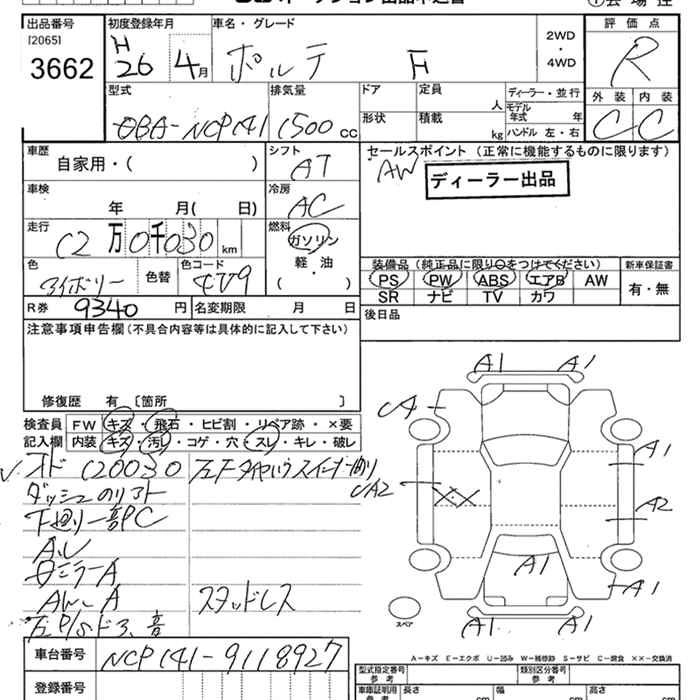 出品番号 初度登録年月 車名・グレード 評価点
[2065] H 2WD
3662 26 4月 ポルテ F ・ 4WD R
型式 排気量 ドア 定員 人 ディーラー・並行 外装 内装
DBA-NCP141 1500cc 形状 積載 kg モデル年式 年 C C
ハンドル 左・右
車歴 シフト セールスポイント (正常に機能するものに限ります)
自家用・( ) AT AW ディーラー出品
車検 冷房
年 月( 日) AC
走行 燃料
12万0千030km ガソリン
軽・油
( )
装備品 (純正品に限り○をつけてください) 新車保証書
色 色替 色コード PS PW ABS エアB AW 有・無
アイボリー 4V9 SR ナビ TV カワ
R券 9340円 名変期限 月 日 後日品
注意事項申告欄 (不具合内容等は具体的に記入して下さい)
修復歴 有 [箇所 ]
検査員 FW キズ・飛石・ヒビ割・リペア跡・×要
記入欄 内装 キズ・汚レ・コゲ・穴・スレ・キレ・破レ
オド 120030
ダッシュのリフト
下廻り一部PC
スタッドレス
車台番号 NCP141-9118927
登録番号
A1 A1
A1
A2
XX
A1
A1
A1 A1
スペア
A-キズ E-エクボ U-凹み W-補修跡 S-サビ C-腐食 ××-交換済
型式指定番号 類別区分番号
参考 参考
車庫証明用 長さ 幅 高さ
参考 cm cm cm